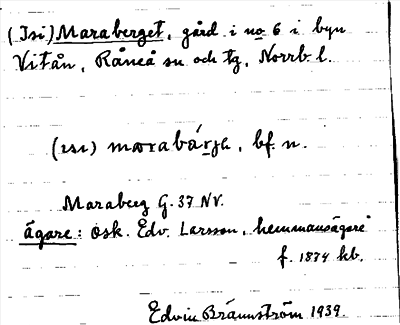 (Isi) Maraberget, gård i no 6 i byn
Vitån, Råneå sn och tg, Norrb. l.
bf. n.
Maraberg G. 37 NV.
ägare: Osk. Edv. Larsson, hemmansägare
f. 1874 kb.
Edvin Brännström 1939.